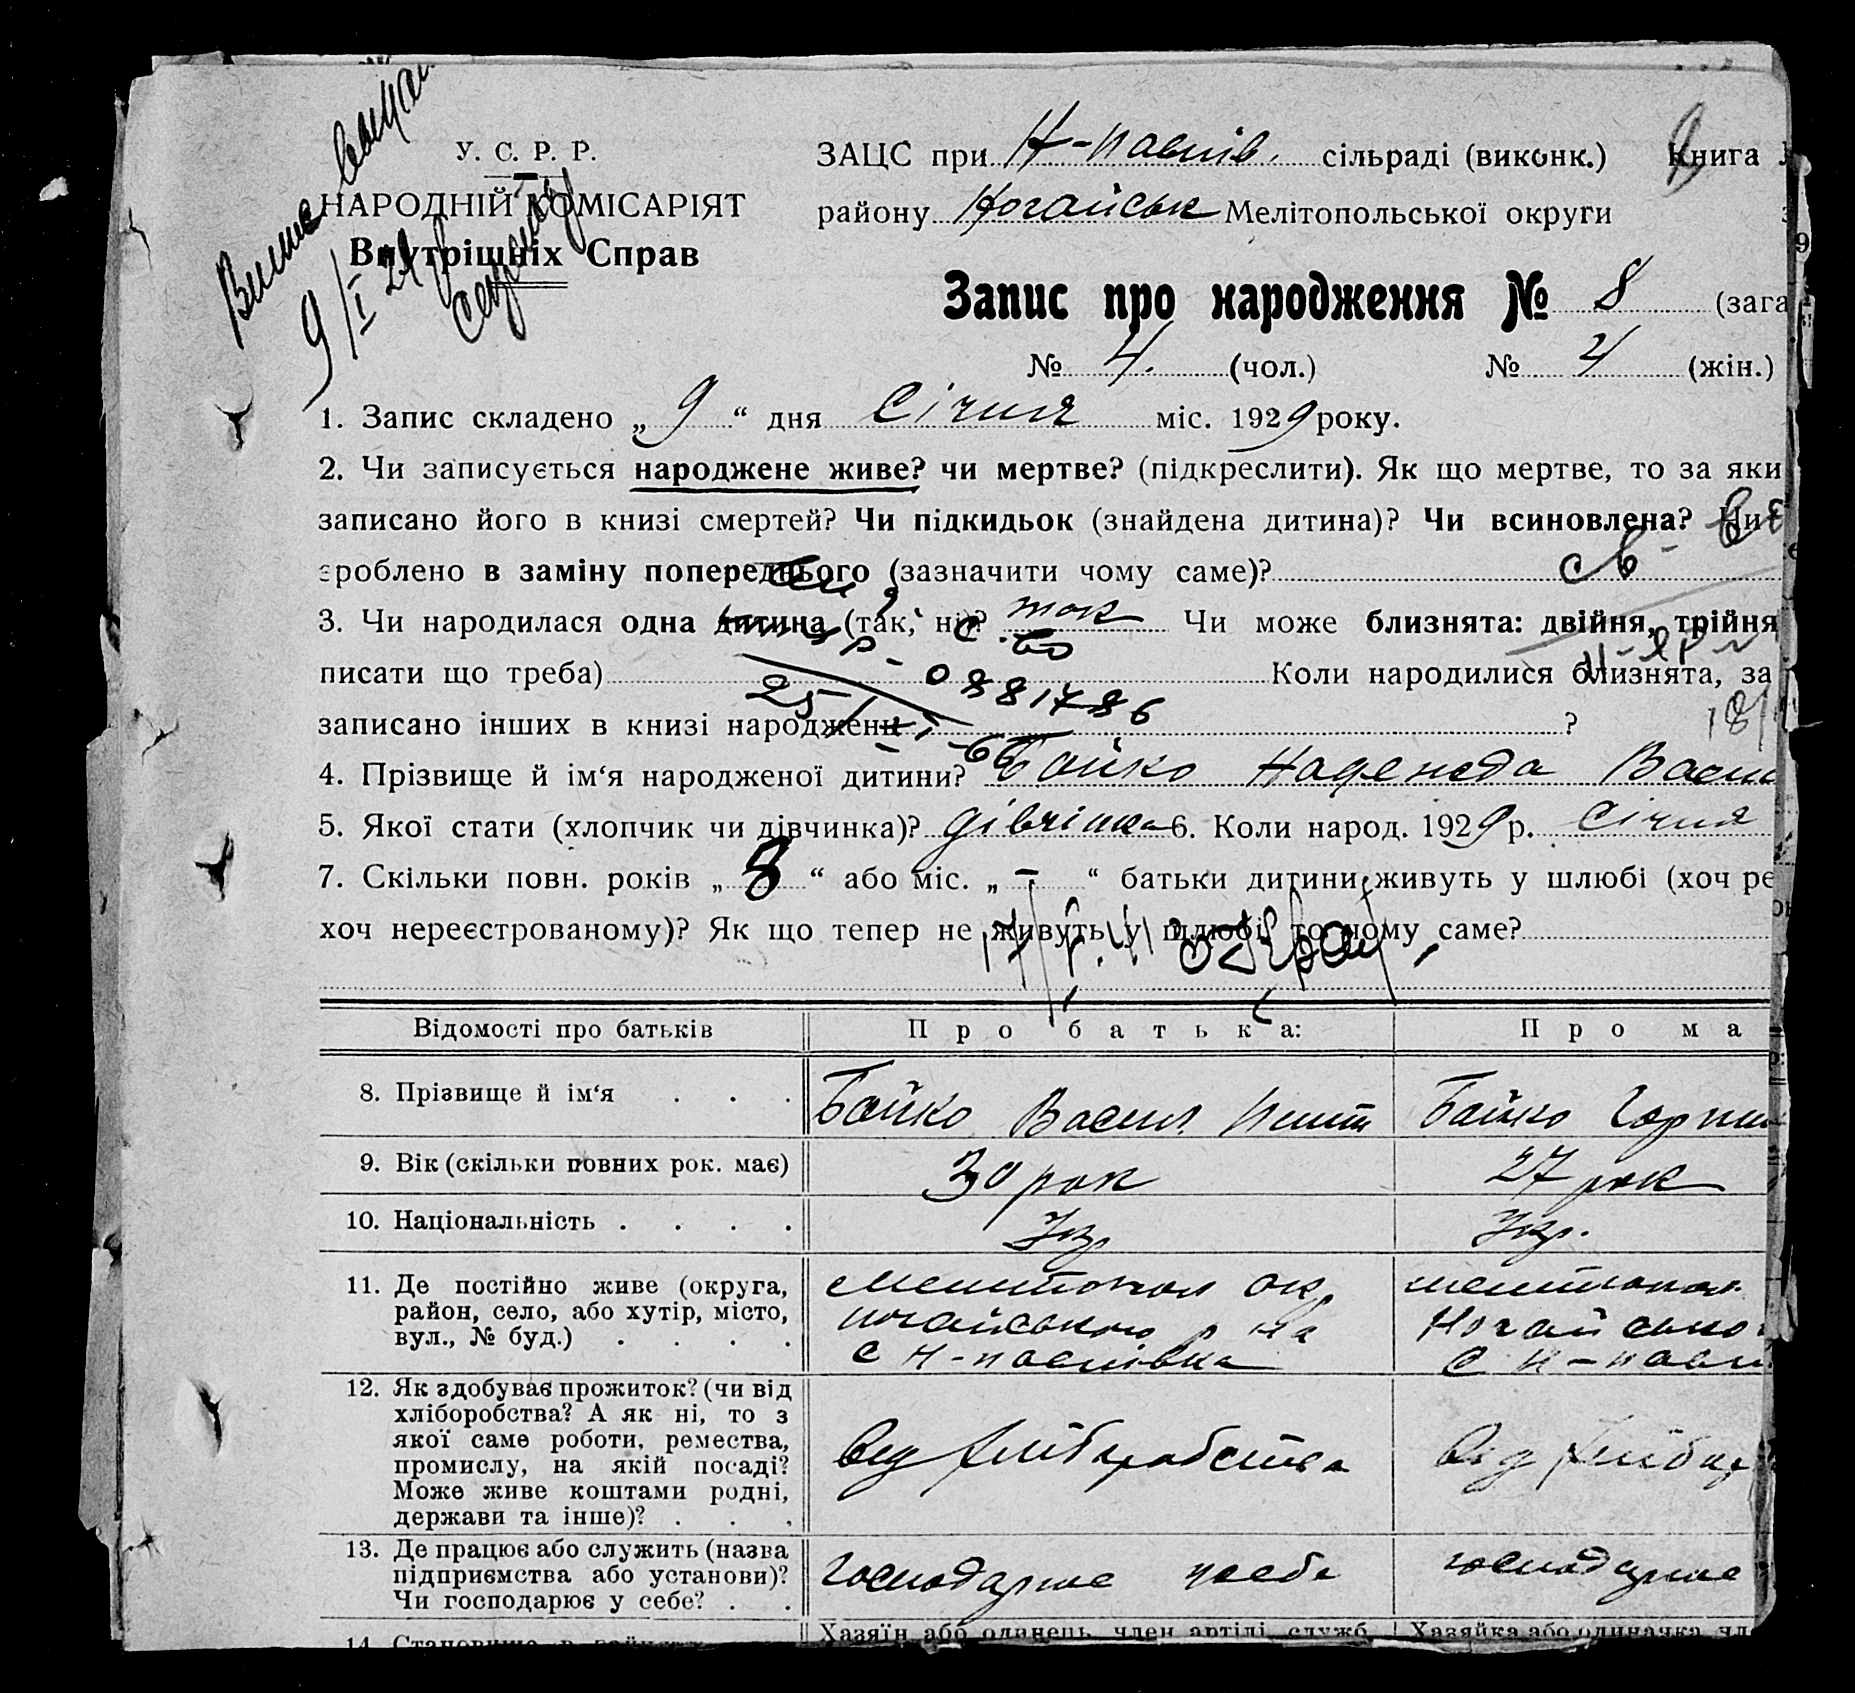 У. С. Р. Р.
НАРОДНІЙ КОМІСАРІЯТ
Внутрішніх Справ
ЗАЦС при Н-паспів. сільраді (виконк.) Книга
району Ногайськ Мелітопольської округи
Запис про народження № 8 (зага
№ 4. (чол.) № 4 (жін.)
1. Запис складено „9“ дня Січня міс. 1929 року.
2. Чи записується народжене живе? чи мертве? (підкреслити). Як що мертве, то за яки
записано його в книзі смертей? Чи підкидьок (знайдена дитина)? Чи всиновлена? Чи
зроблено в заміну попереднього (зазначити чому саме)?
3. Чи народилася одна дитина (так, ні)? так Чи може близнята: двійня, трійня
писати що треба) Коли народилися близнята, за
0881786
25
записано інших в книзі народжень ?
4. Прізвище й ім‘я народженої дитини? Бойко Надежда Васил
5. Якої стати (хлопчик чи дівчинка)? дівчінка 6. Коли народ. 1929 р. Січня
7. Скільки повн. років „8“ або міс. „–“ батьки дитини живуть у шлюбі (хоч ре
хоч нереєстрованому)? Як що тепер не живуть у шлюбі, то чому саме?
Відомості про батьків Про батька: Про ма
8. Прізвище й ім‘я . . . Бойко Васил Бойко Горпин
9. Вік (скільки повних рок. має) 30 рок 27 рок
10. Національність . . . . Укр Укр.
11. Де постійно живе (округа,
район, село, або хутір, місто,
вул., № буд.) . . . .
Мелитопол ок
ногайського р на
с Н-паспівка
мелитопол.
Ногайсько
с Н-пасп
12. Як здобуває прожиток? (чи від
хліборобства? А як ні, то з
якої саме роботи, ремества,
промислу, на якій посаді?
Може живе коштами родні,
держави та інше)? . . .
Від хлиборобства
Від хлибор
13. Де працює або служить (назва
підприємства або установи)?
Чи господарює у себе? . .
господарює у себе
господарює
14. Становище в
Хазяїн або одинець, член артілі, служб.
Хазяйка або одиначка, чл